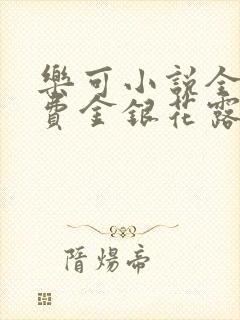 樂可小說全
費金銀花露
隋煬帝